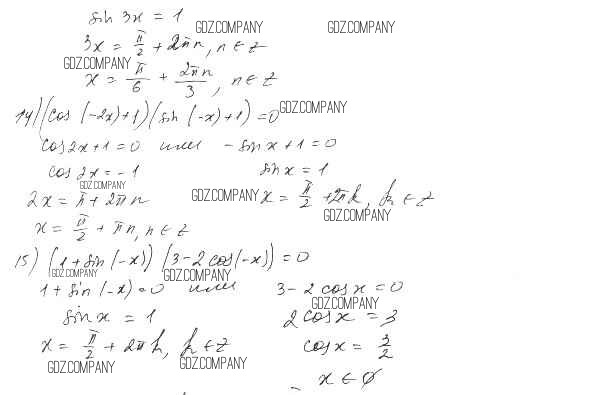 sin 3x = 1
GDZ.COMPANY GDZ.COMPANY
3x = π/2 + 2πn, n ∈ Z
GDZ.COMPANY
x = π/6 + 2πn/3, n ∈ Z
14) (cos (-2x)+1) (sin (-x)+1) = 0 GDZ.COMPANY
cos 2x + 1 = 0 или - sin x + 1 = 0
cos 2x = -1 sin x = 1
GDZ.COMPANY
2x = π + 2πn GDZ.COMPANY x = π/2 + 2πk, k ∈ Z
GDZ.COMPANY
x = π/2 + πn, n ∈ Z
15) (1 + sin (-x)) (3 - 2 cos(-x)) = 0
GDZ.COMPANY GDZ.COMPANY
1 + sin (-x) = 0 или 3 - 2 cos x = 0
GDZ.COMPANY
sin x = 1 2 cos x = 3
x = π/2 + 2πk, k ∈ Z cos x = 3/2
GDZ.COMPANY GDZ.COMPANY
x ∈ ∅